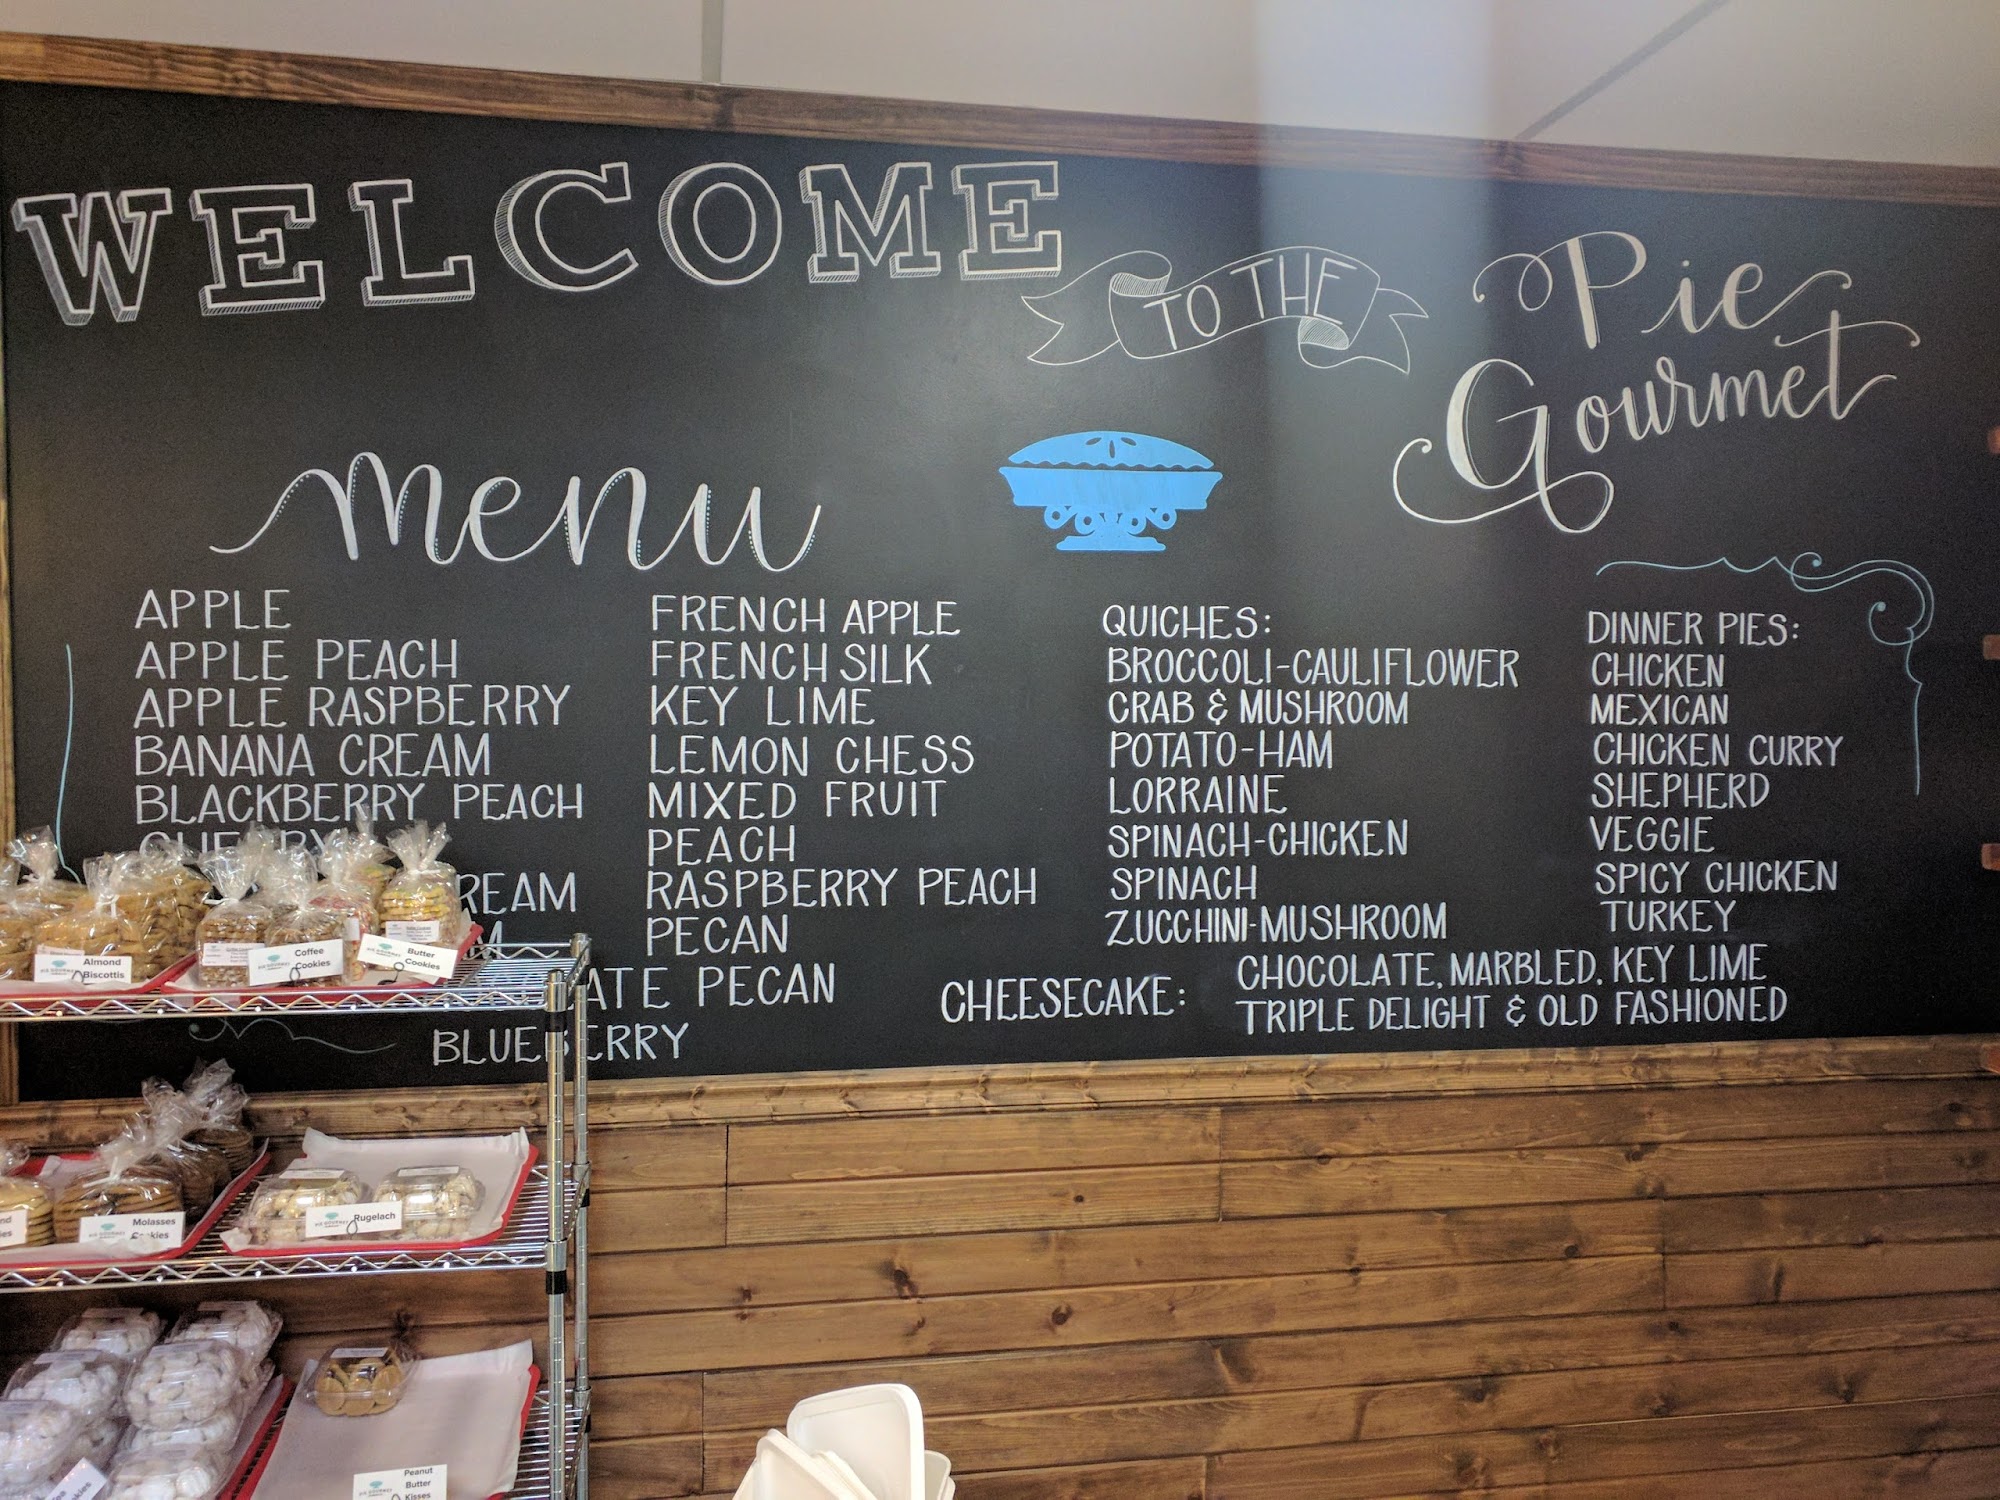 WELCOME
TO THE
Pie
Gourmet
menu
APPLE
APPLE PEACH
APPLE RASPBERRY
BANANA CREAM
BLACKBERRY PEACH
CHERRY
FRENCH APPLE
FRENCH SILK
KEY LIME
LEMON CHESS
MIXED FRUIT
PEACH
RASPBERRY PEACH
PECAN
PECAN
BLUEBERRY
QUICHES:
BROCCOLI-CAULIFLOWER
CRAB & MUSHROOM
POTATO-HAM
LORRAINE
SPINACH-CHICKEN
SPINACH
ZUCCHINI-MUSHROOM
DINNER PIES:
CHICKEN
MEXICAN
CHICKEN CURRY
SHEPHERD
VEGGIE
SPICY CHICKEN
TURKEY
CHEESECAKE:
CHOCOLATE, MARBLED, KEY LIME
TRIPLE DELIGHT & OLD FASHIONED
Almond
Biscottis
Coffee
Cookies
Butter
Cookies
Molasses
Cookies
Rugelach
Peanut
Butter
Kisses